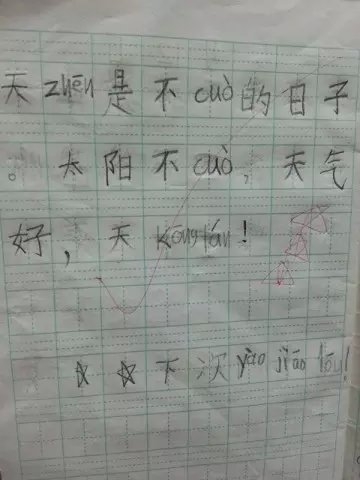 天zhēn是不cuò的日子
。太阳不cuò，天气
好，天kōnglán！
下次yào jiāo lóu！